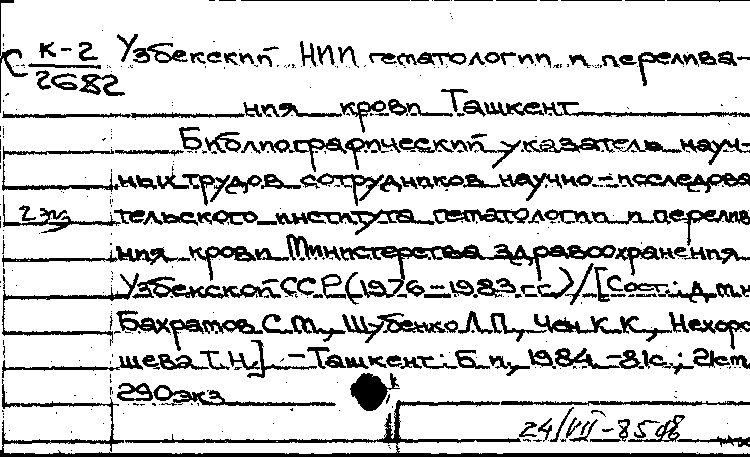 С К-2 Узбекский НИИ гематологии и перелива-
2682
ния крови Ташкент
Библиографический указатель науч-
ных трудов сотрудников научно-исследова
2 экз тельского института гематологии и перелив
ния крови Министерства здравоохранения
Узбекской ССР (1976-1983 гг.) / [Сост.: д.м.н
Бахрамов С.М., Шубенко Л.П., Чен К.К., Нехоро
шева Т.Н.]. - Ташкент: Б.и., 1984. - 81с.; 21см
290 экз
24/VII-85